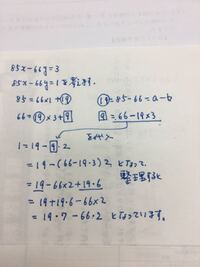 85x-66y=3
85x-66y=1を考えます。
85=66×1+19 19=85-66=a-b
66=19×3+9 9=66-19×3
1=19-9・2
=19-(66-19・3)2 となって
整理すると
=19-66×2+19・6
=19+19・6-66×2
=19・7-66・2 となっています。